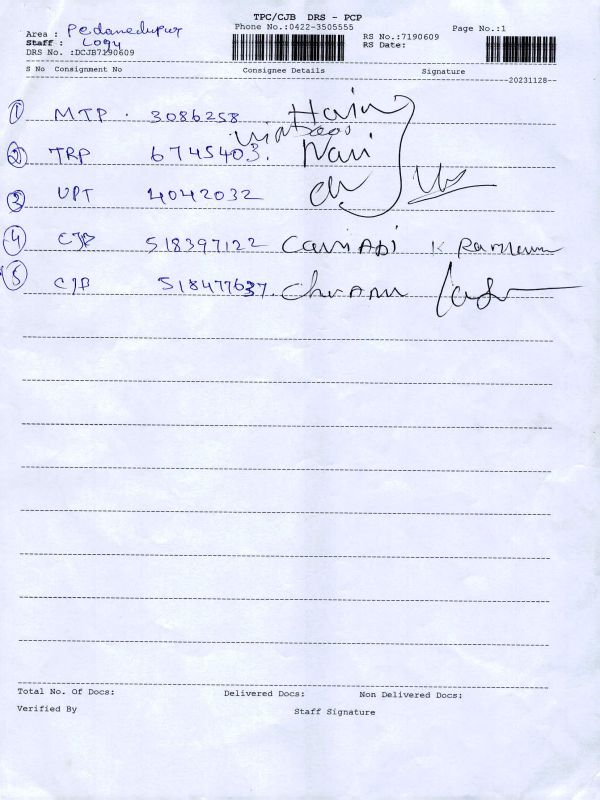 TPC/CJB DRS - PCP
Phone No.:0422-3505555
Page No.:1
Area :
Staff : Logu
DRS No. :DCJB7190609
RS No.:7190609
RS Date:
S No Consignment No Consignee Details Signature
20231128
1 MTP 3086258 Hari
2 TRP 6745403. Nari
3 UPT 4042032
4 CJB 518397122
5 CJB 518477637.
Total No. Of Docs: Delivered Docs: Non Delivered Docs:
Verified By Staff Signature